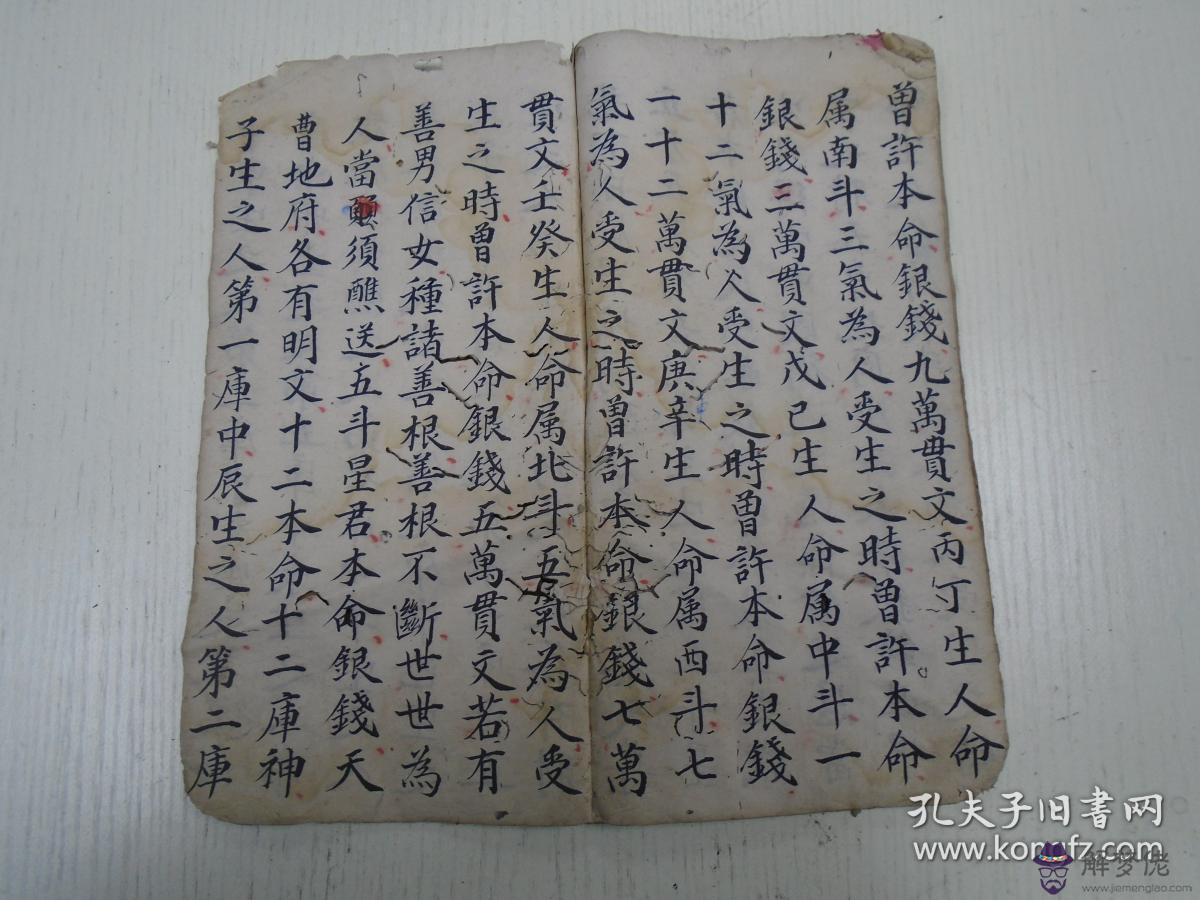 曽許本命銀錢九萬貫文丙丁生人命
属南斗三氣為人受生之時曽許本命
銀錢三萬貫文戊己生人命属中斗一
十二氣為人受生之時曽許本命銀錢
一十二萬貫文庚辛生人命属西斗七
氣為人受生之時曽許本命銀錢七萬
貫文壬癸生人命属北斗五氣為人受
生之時曽許本命銀錢五萬貫文若有
善男信女種諸善根善根不斷世世為
人當願須醮送五斗星君本命銀錢天
曹地府各有明文十二本命十二庫神
子生之人第一庫中辰生之人第二庫
孔夫子旧书网
www.kongfz.com
解梦佬
www.jiemenglao.com